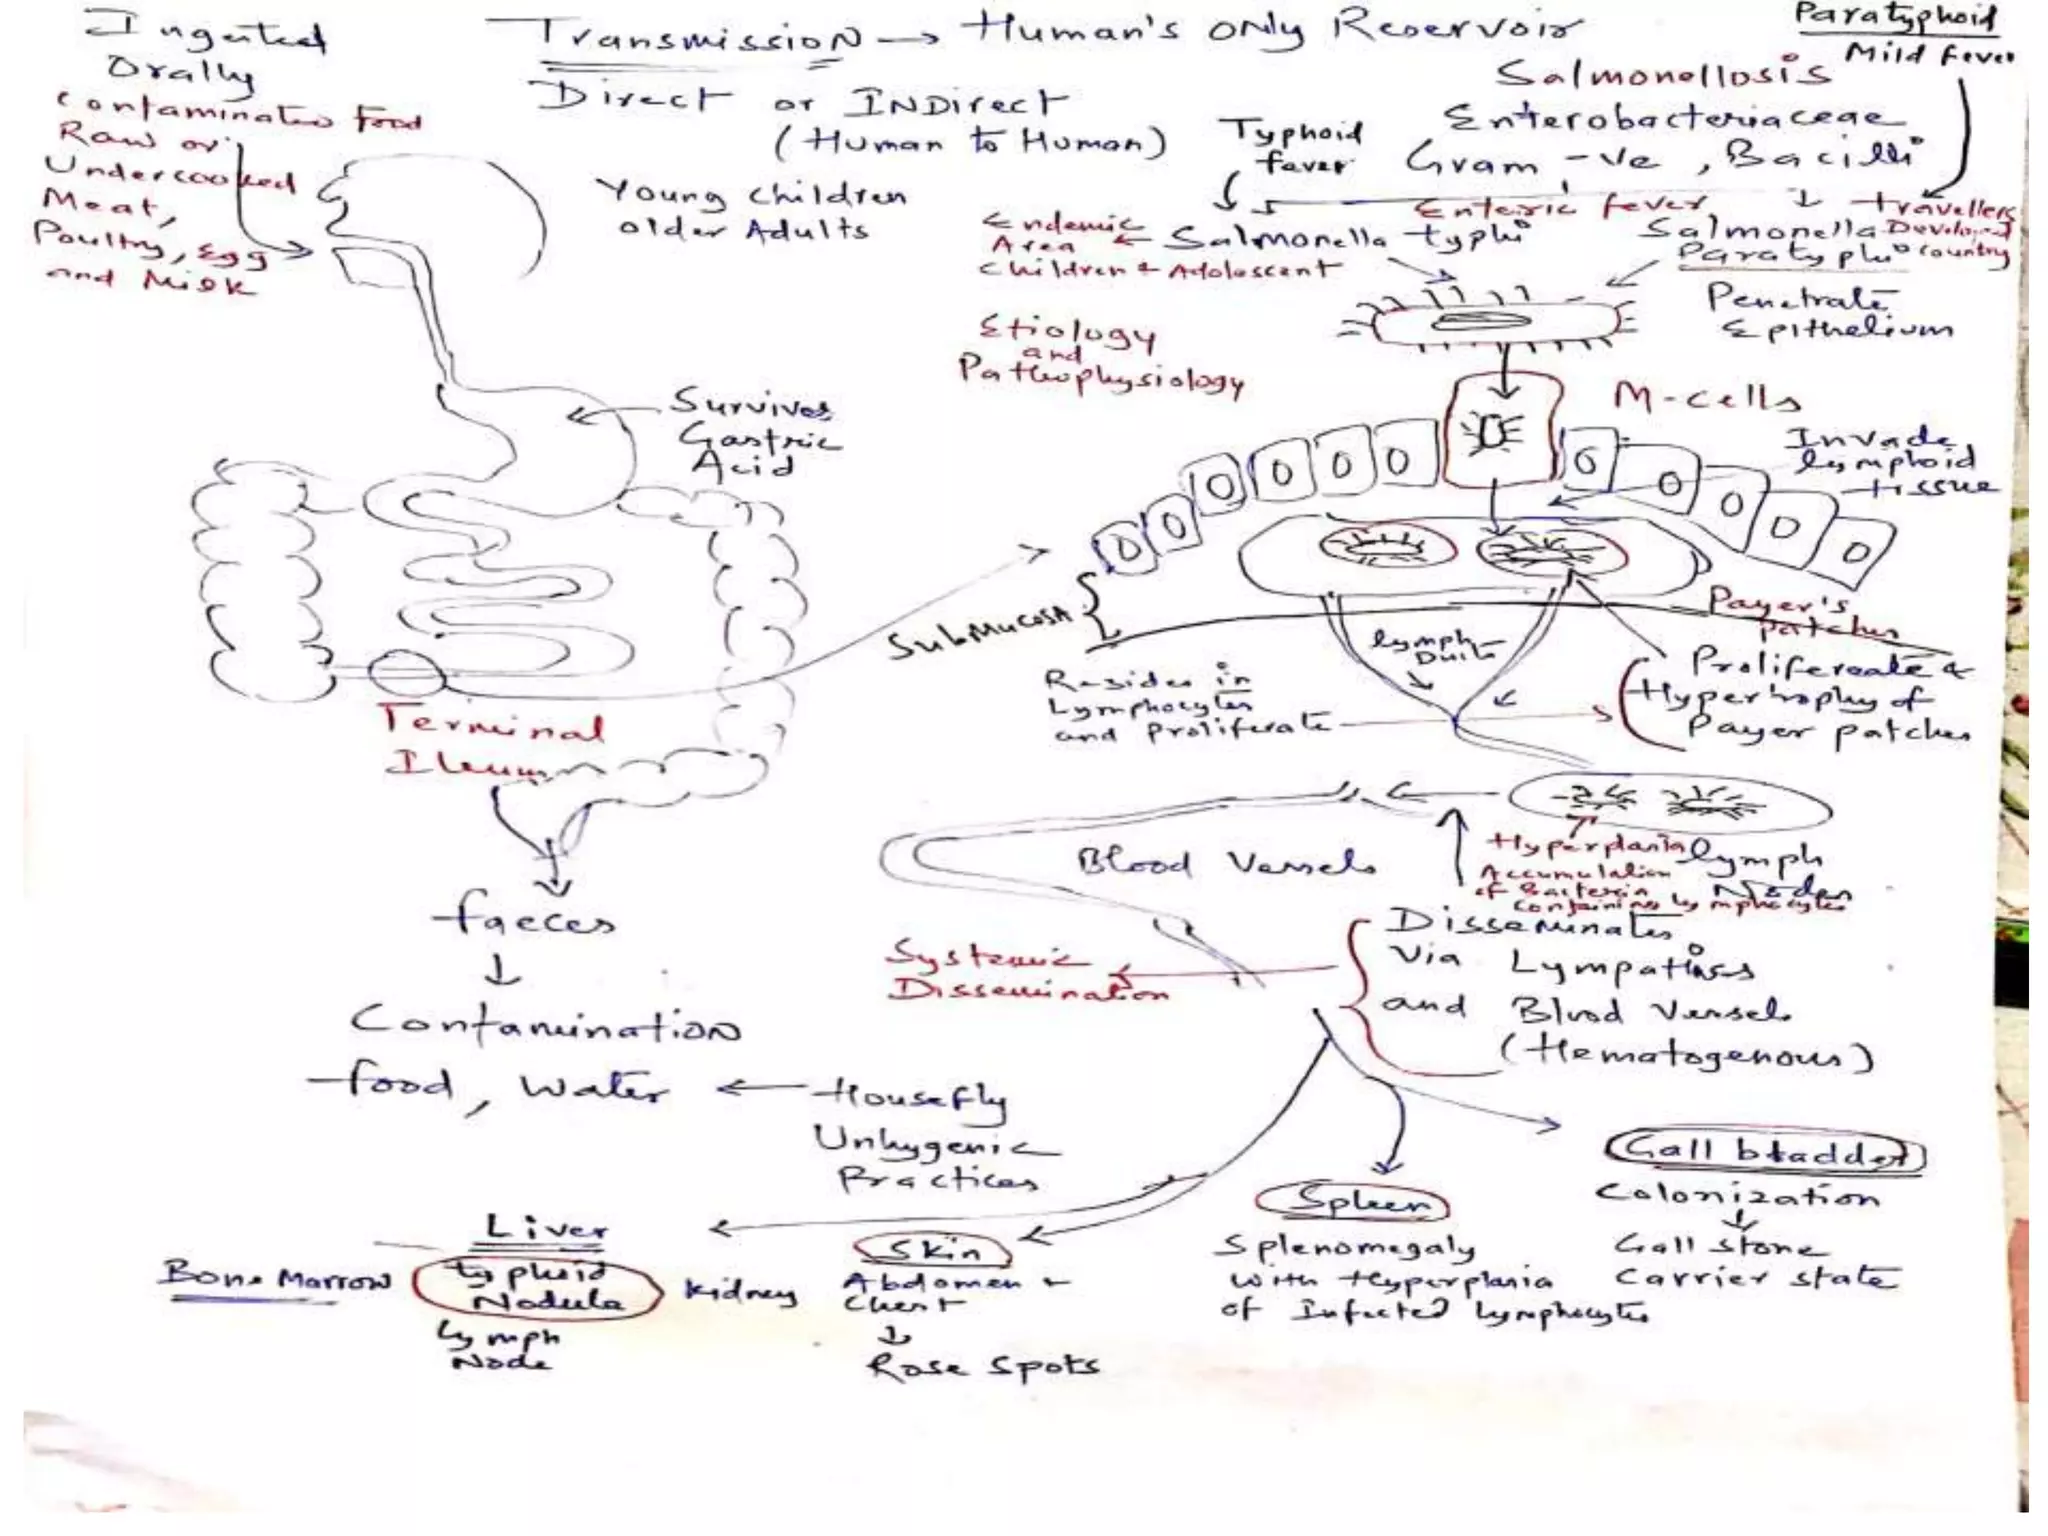 Ingested
Orally
contaminated food
Raw or
Undercooked
Meat,
Poultry, Egg
and Milk
Transmission → Human's only Reservoir
Direct or INDirect
(Human to Human)
Young children
older Adults
Paratyphoid
Mild Fever
Salmonellosis
Enterobacteriaceae
Gram -ve, Bacilli
Typhoid
fever
Enteric fever
Travellers
Developed
country
Endemic
Area ← Salmonella typhi
children + Adolescent
Salmonella
Paratyphi
Etiology
and
Pathophysiology
Penetrate
Epithelium
M-cells
Invade
lymphoid
tissue
Survives
Gastric
Acid
SubMucosA
Payer's
patches
lymph
Resides in
Lymphocytes
and Proliferate
Proliferate +
Hypertrophy of
Payer patches
Terminal
Ileum
Blood Vessels
Hyperplasia
Accumulation
of Bacteria
containing lymphocytes
lymph
Nodes
faeces
↓
Contamination
food, Water ← Housefly
Unhygenic
Practices
Systemic
Dissemination
Disseminates
Via Lympatics
and Blood Vessels
(Hematogenous)
Gall bladder
Colonization
↓
Gall stone
Carrier state
Spleen
Splenomegaly
with Hyperplasia
of Infected lymphocytes
Skin
Abdomen +
Chest
↓
Rose spots
Liver
Bone Marrow
typhoid
Nodule
kidney
Lymph
Node